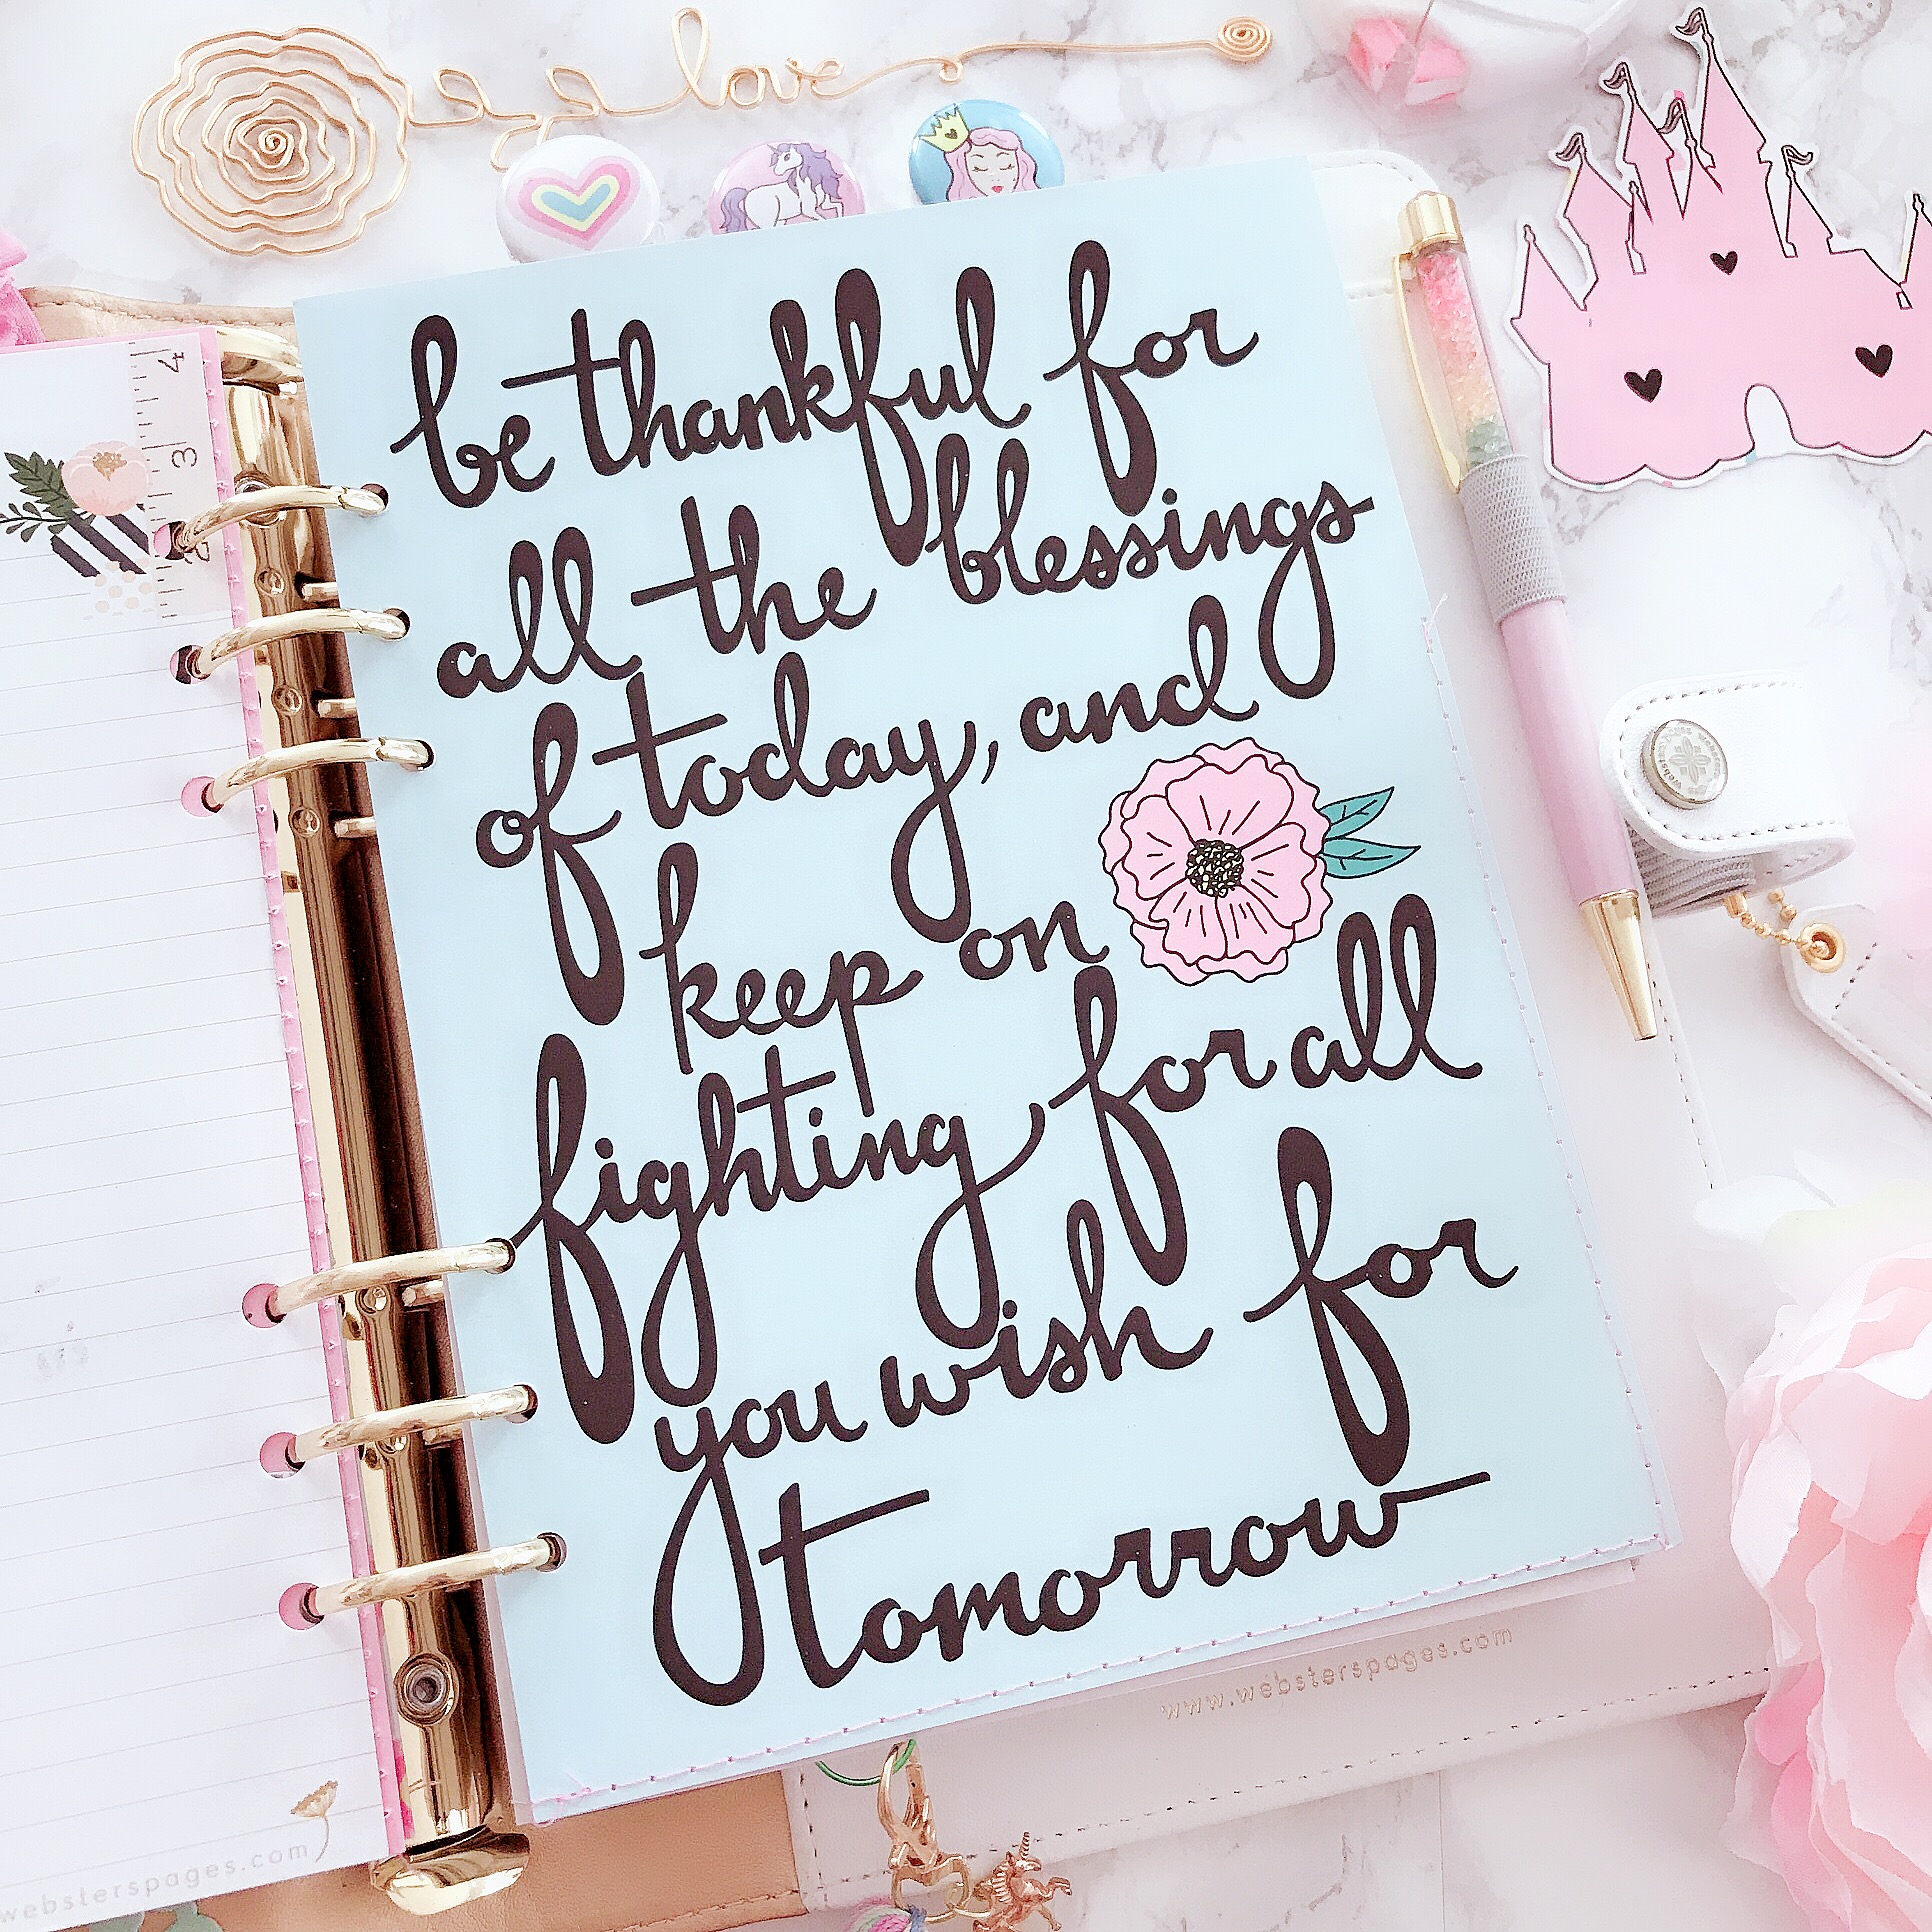 love
be thankful for
all the blessings
of today, and
keep on
fighting for all
you wish for
tomorrow
4
3
2
www.websterspages.com
websterspages.com